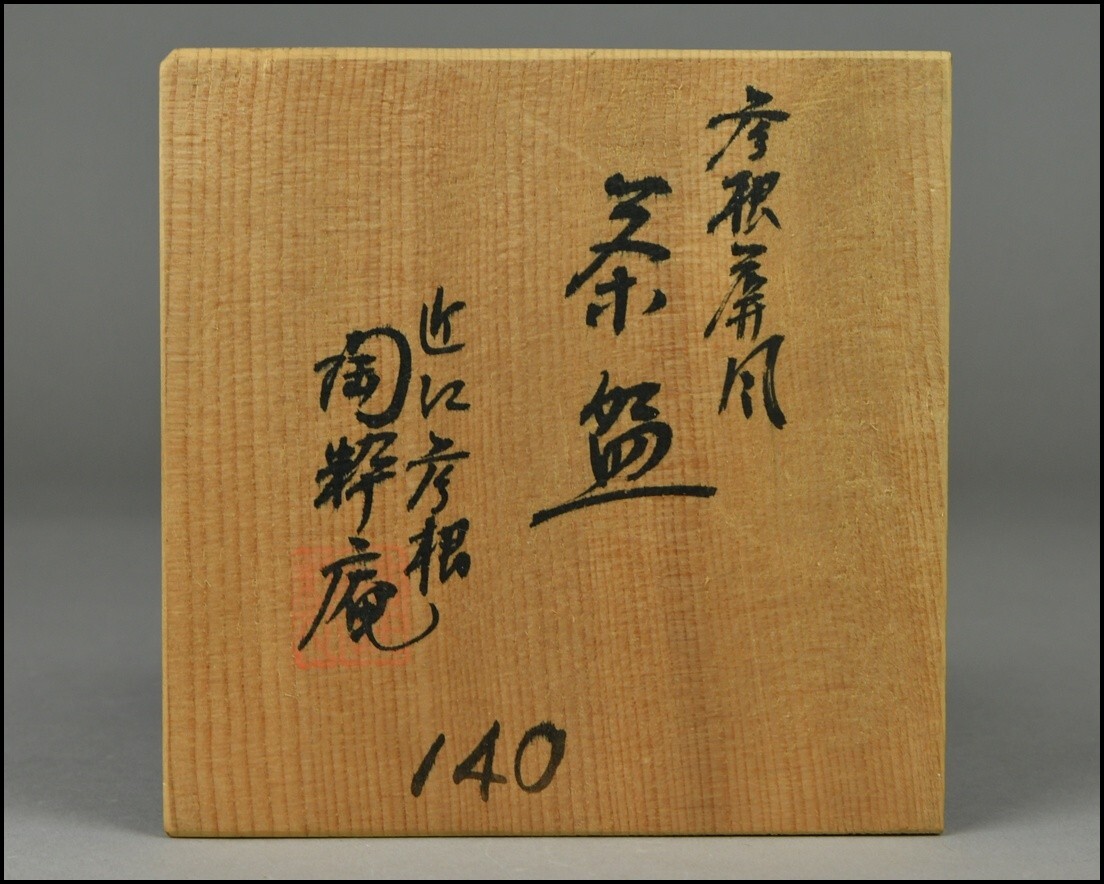 彦根屏風
茶盌
近江彦根
陶粹庵
140